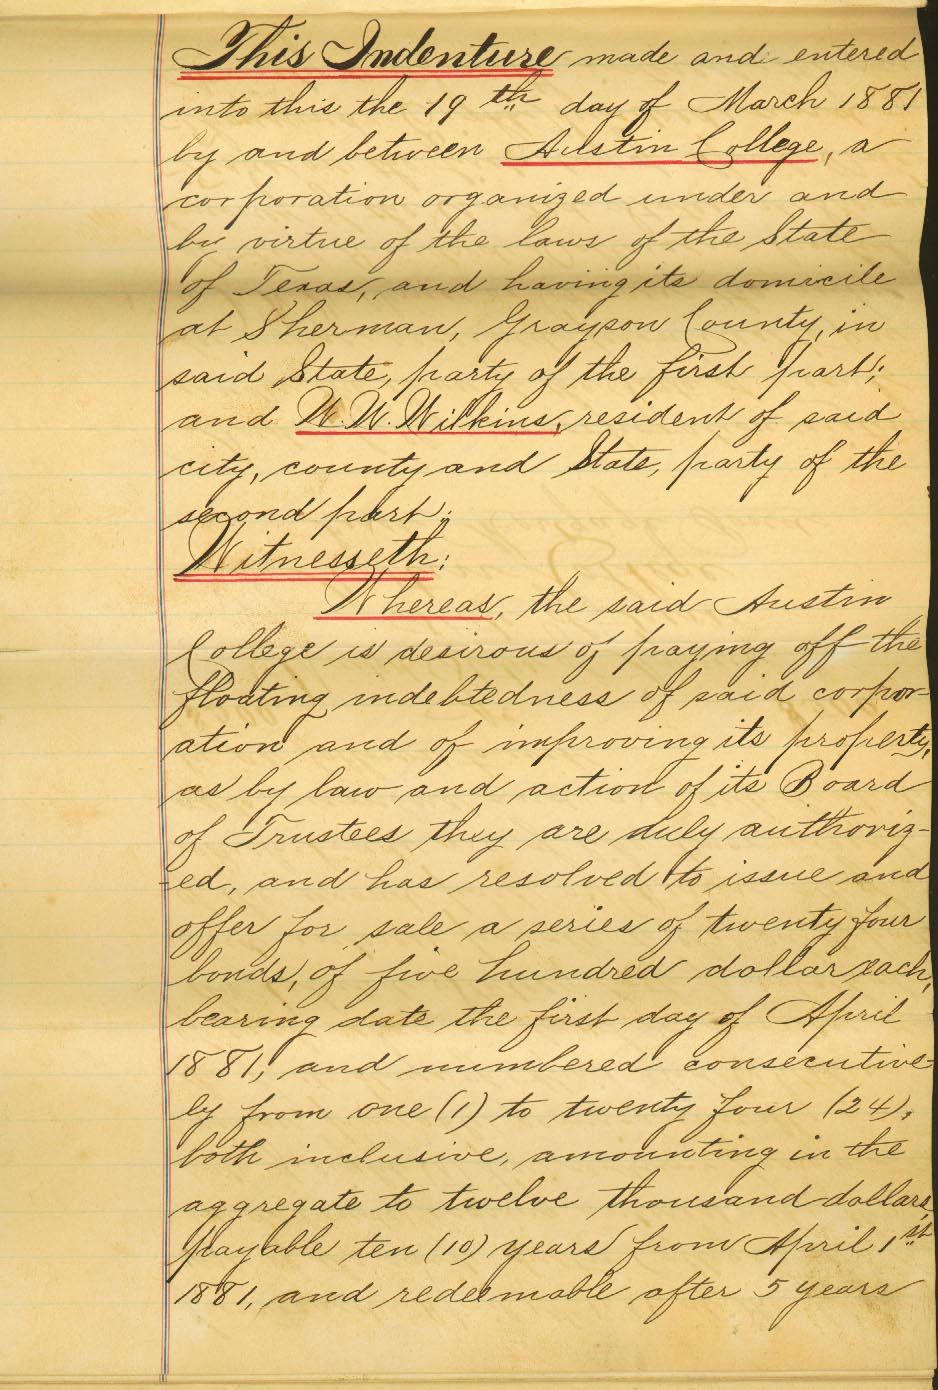 This Indenture made and entered
into this the 19th day of March 1881
by and between Austin College, a
corporation organized under and
by virtue of the laws of the State
of Texas, and having its domicile
at Sherman, Grayson County, in
said State, party of the first part;
and W. W. Wilkins, resident of said
city, county and State, party of the
second part;
Witnesseth:
Whereas, the said Austin
College is desirous of paying off the
floating indebtedness of said corpor-
ation and of improving its property,
as by law and action of its Board
of Trustees they are duly authoriz-
-ed, and has resolved to issue and
offer for sale a series of twenty four
bonds, of five hundred dollar each,
bearing date the first day of April
1881, and numbered consecutive-
ly from one (1) to twenty four (24),
both inclusive, amounting in the
aggregate to twelve thousand dollars,
payable ten (10) years from April 1st
1881, and redeemable after 5 years